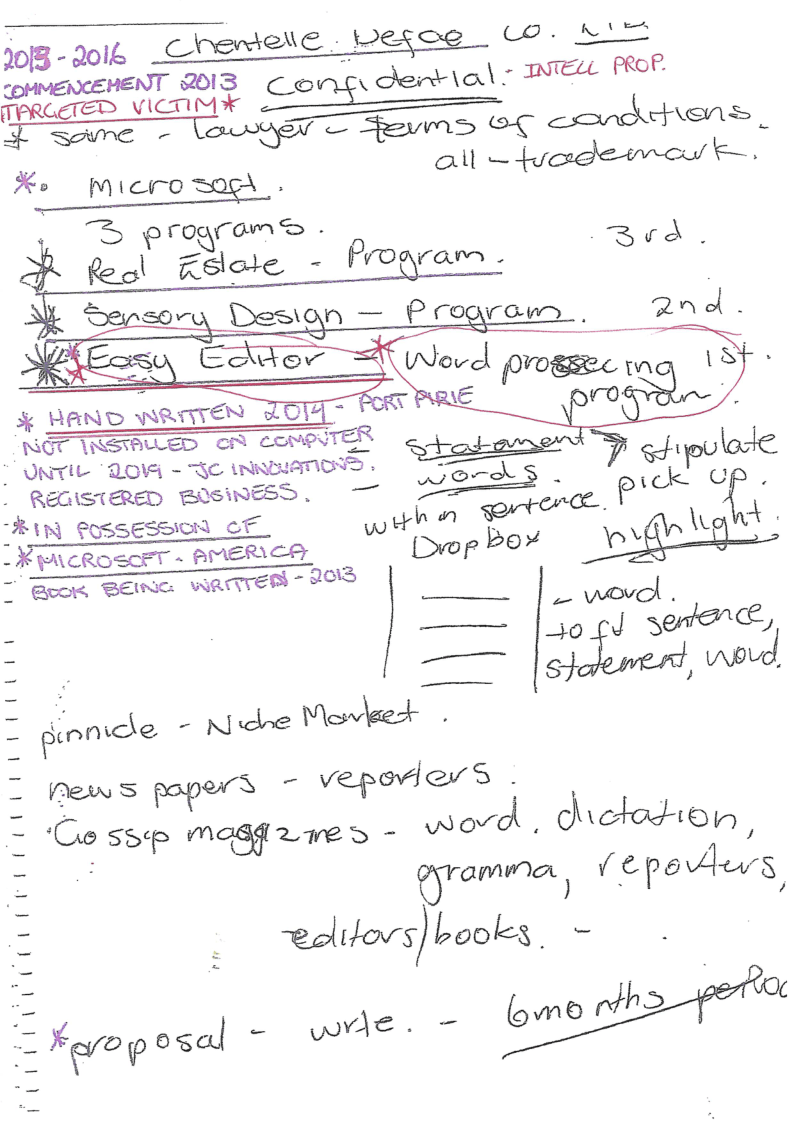 2013 - 2016 Chentelle Defae Co.
COMMENCEMENT 2013 Confidential. - INTELL PROP.
TARGETED VICTIM *
* same - lawyer - terms of conditions.
all - trademark.
* • Microsoft.
3 programs.
* Real Estate - Program. 3rd.
* Sensory Design - Program. 2nd.
* Easy Editor - * Word processecing program. 1st.
* HAND WRITTEN 2014 - PORT PIRIE
NOT INSTALLED ON COMPUTER
UNTIL 2019 - JC INNOVATIONS.
REGISTERED BUSINESS. -
* IN POSSESSION OF
* MICROSOFT - AMERICA
BOOK BEING WRITTEN - 2013
statament → stipulate
words. pick up.
within sentence.
Dropbox highlight.
- word.
to fd sentence,
statement, word.
pinnicle - Niche Market.
news papers - reporters.
Gossip maggzines - word, dictation,
gramma, reporters,
editors/books. -
* proposal - write. - 6 months